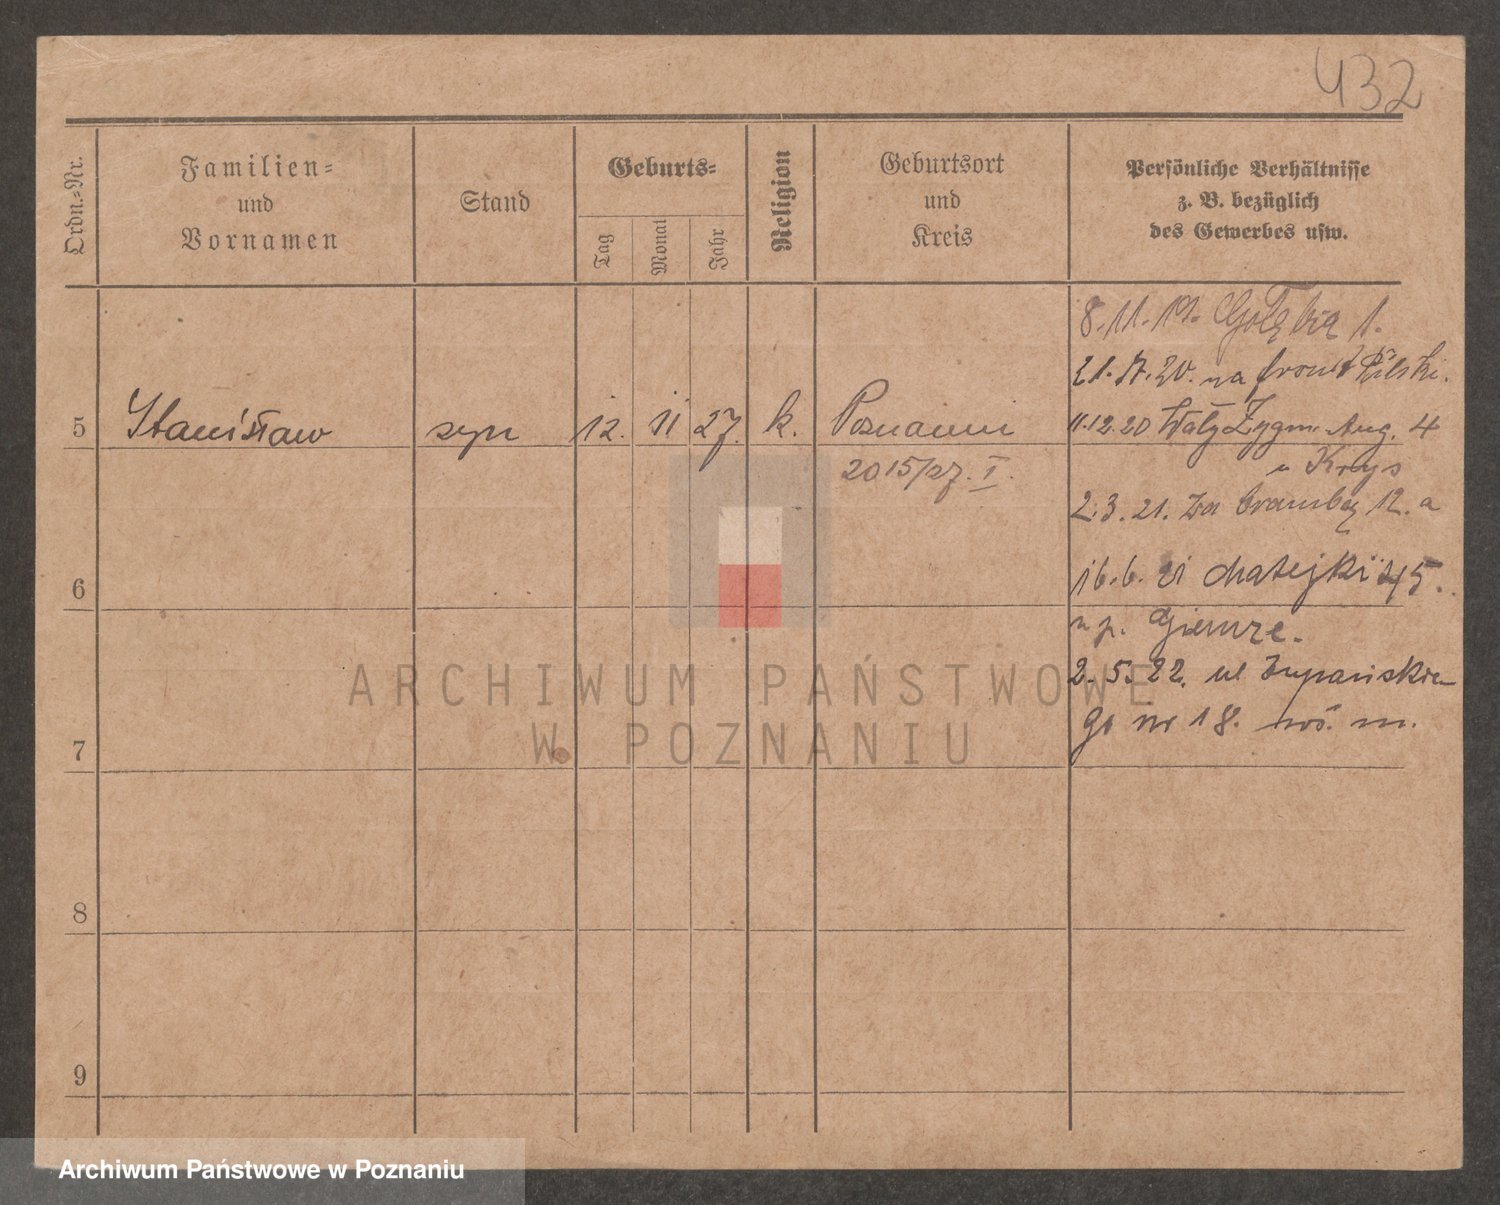 432
Ordn.-Nr.
Familien-
und
Vornamen
Stand
Geburts-
Tag
Monat
Jahr
Religion
Geburtsort
und
Kreis
Persönliche Verhältnisse
z. B. bezüglich
des Gewerbes usw.
8.11.19. Gołębia 1.
21. 7. 20. na front
5 Stanisław syn 12. 11 27. k. Poznaniu
11.12.20 Wały Zygm. Aug. 4
2015/27. I.
u Krys
2.3.21. Za bramką 12. a
6
16.6.21 Matejki 45.
u p.
2.5.22. ul Żupańskie
go nr 18. m.
7
8
9
ARCHIWUM PAŃSTWOWE
W POZNANIU
Archiwum Państwowe w Poznaniu